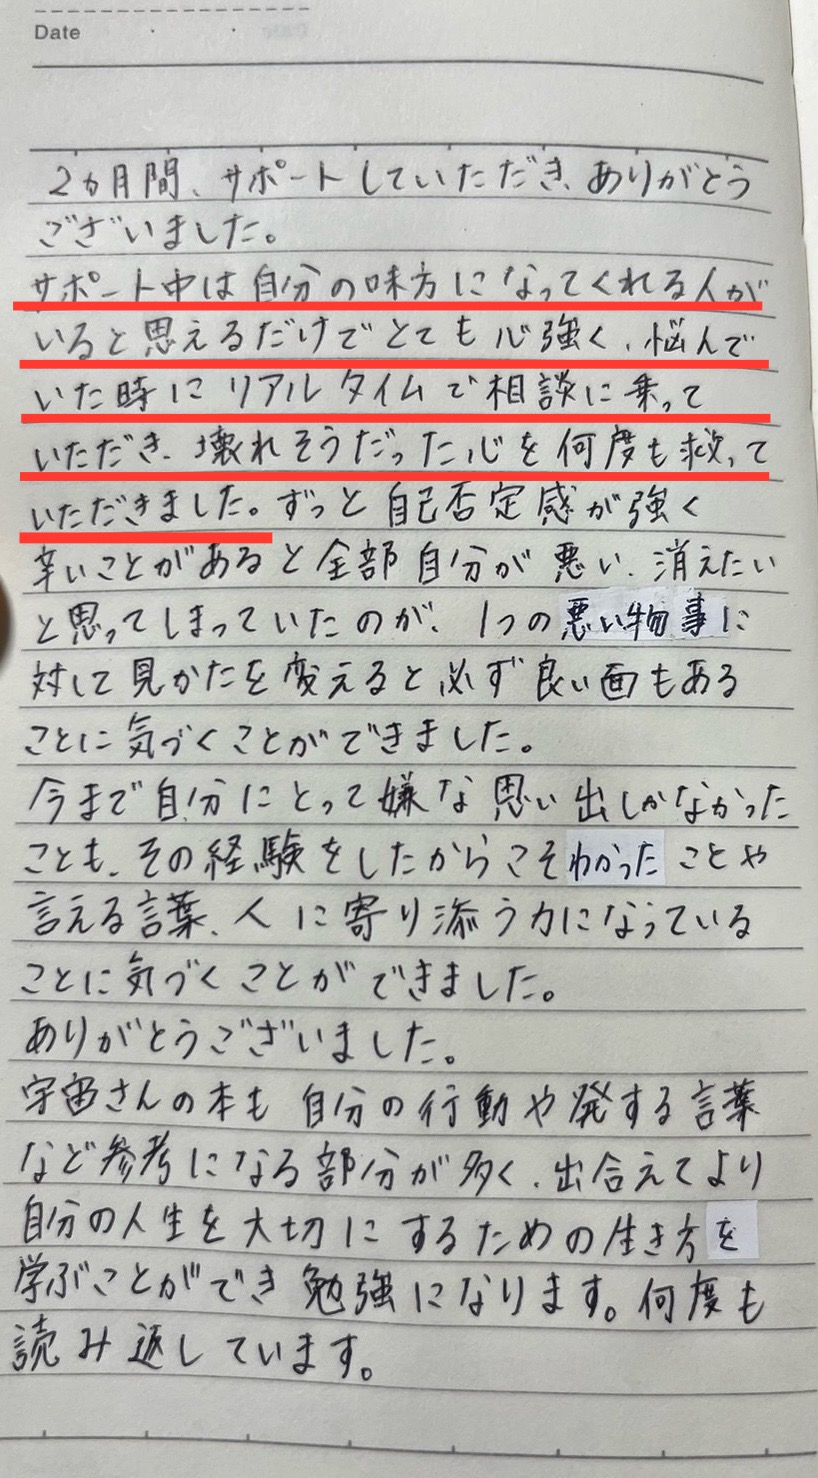 Date
2ヵ月間、サポートしていただき、ありがとう
ございました。
サポート中は自分の味方になってくれる人が
いると思えるだけでとても心強く、悩んで
いた時にリアルタイムで相談に乗って
いただき、壊れそうだった心を何度も救って
いただきました。ずっと自己否定感が強く
辛いことがあると全部自分が悪い、消えたい
と思ってしまっていたのが、1つの悪い物事に
対して見かたを変えると必ず良い面もある
ことに気づくことができました。
今まで自分にとって嫌な思い出しかなかった
ことも、その経験をしたからこそわかったことや
言える言葉、人に寄り添う力になっている
ことに気づくことができました。
ありがとうございました。
宇宙さんの本も自分の行動や発する言葉
など参考になる部分が多く、出合えてより
自分の人生を大切にするための生き方を
学ぶことができ勉強になります。何度も
読み返しています。